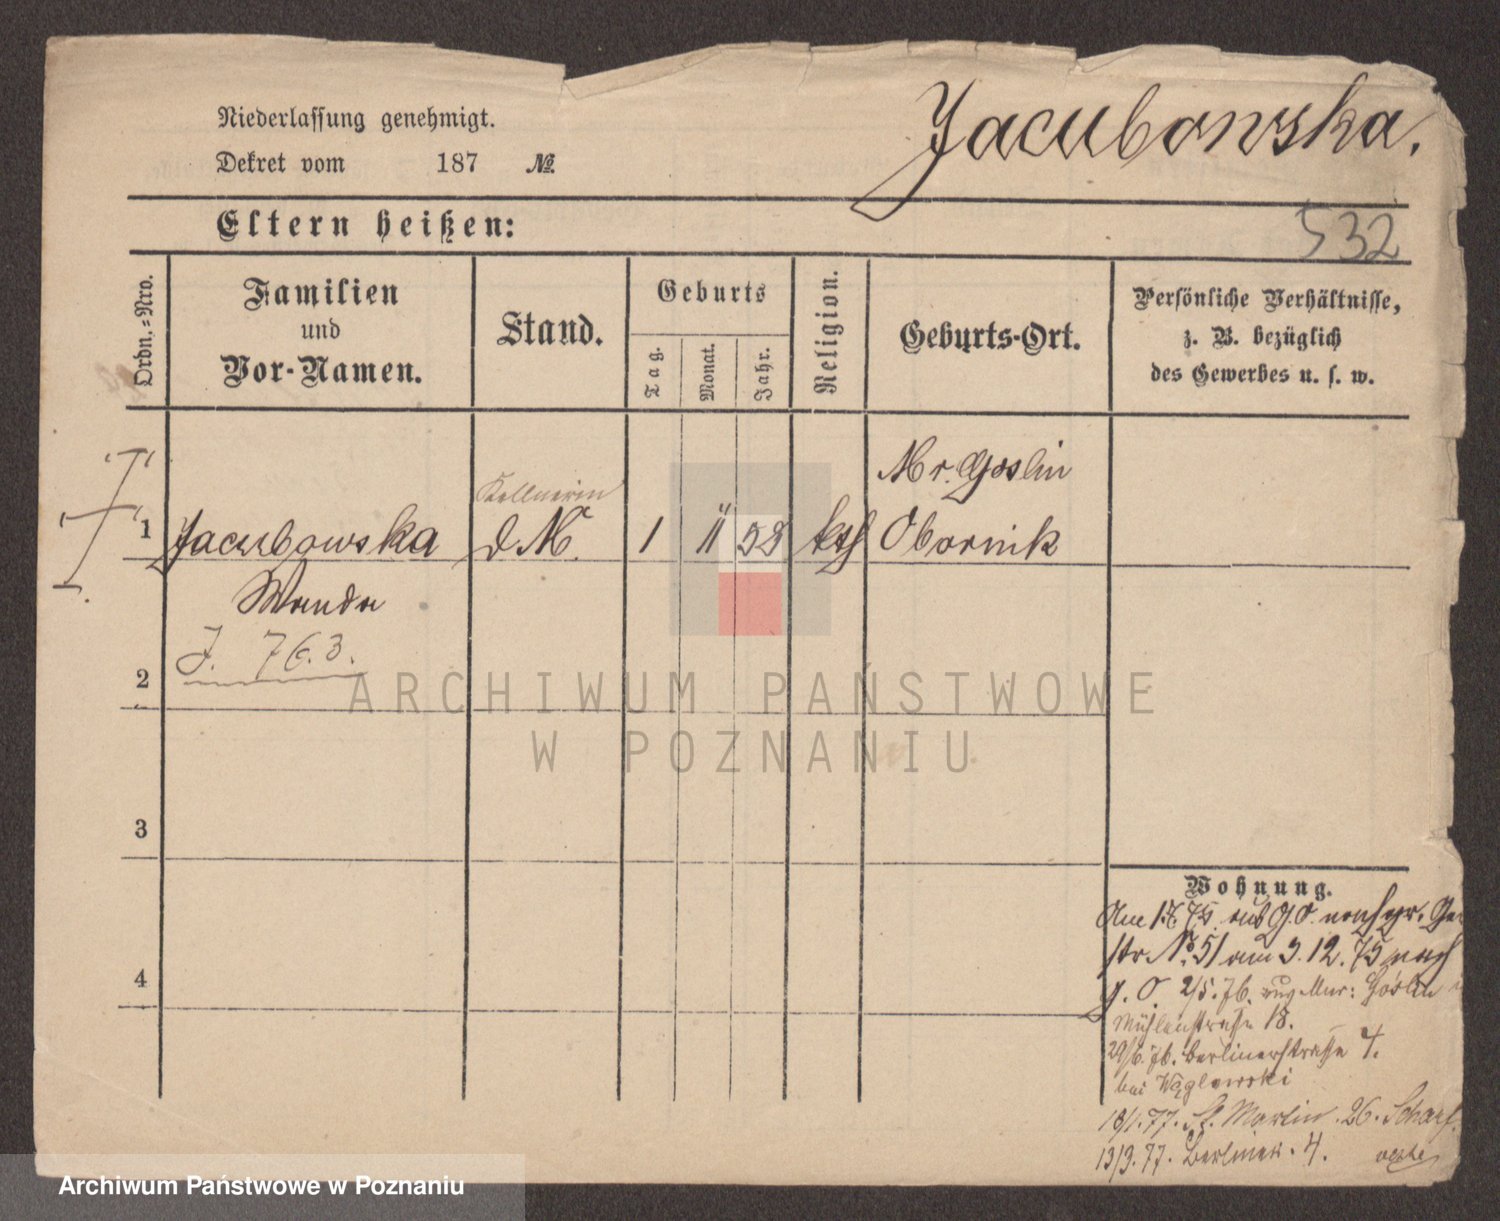 Niederlassung genehmigt.
Dekret vom 187 №
Jacubowska.
Eltern heißen:
532
Ordn.=Nro.
Familien
und
Vor-Namen.
Stand.
Geburts
Tag.
Monat.
Jahr.
Religion.
Geburts-Ort.
Persönliche Verhältnisse,
z. B. bezüglich
des Gewerbes u. s. w.
Mr. Goslin
Kellnerin
1 Jacubowska d M. 1 11 58 kth Obornik
Wanda
J. 763.
2
3
4
Wohnung.
Am 1.7.75 aus G.O. nach gr.
str № 51 am 3.12.75 nach
g. O. 2/5.76. aus Mur: Goslin
Mühlenstrasse 18.
29/6.76. Berlinerstrasse 4.
bei Węglewski
18/1.77. St. Martin 26.
13/3.77. Berliner. 4.
ARCHIWUM PAŃSTWOWE
W POZNANIU
Archiwum Państwowe w Poznaniu